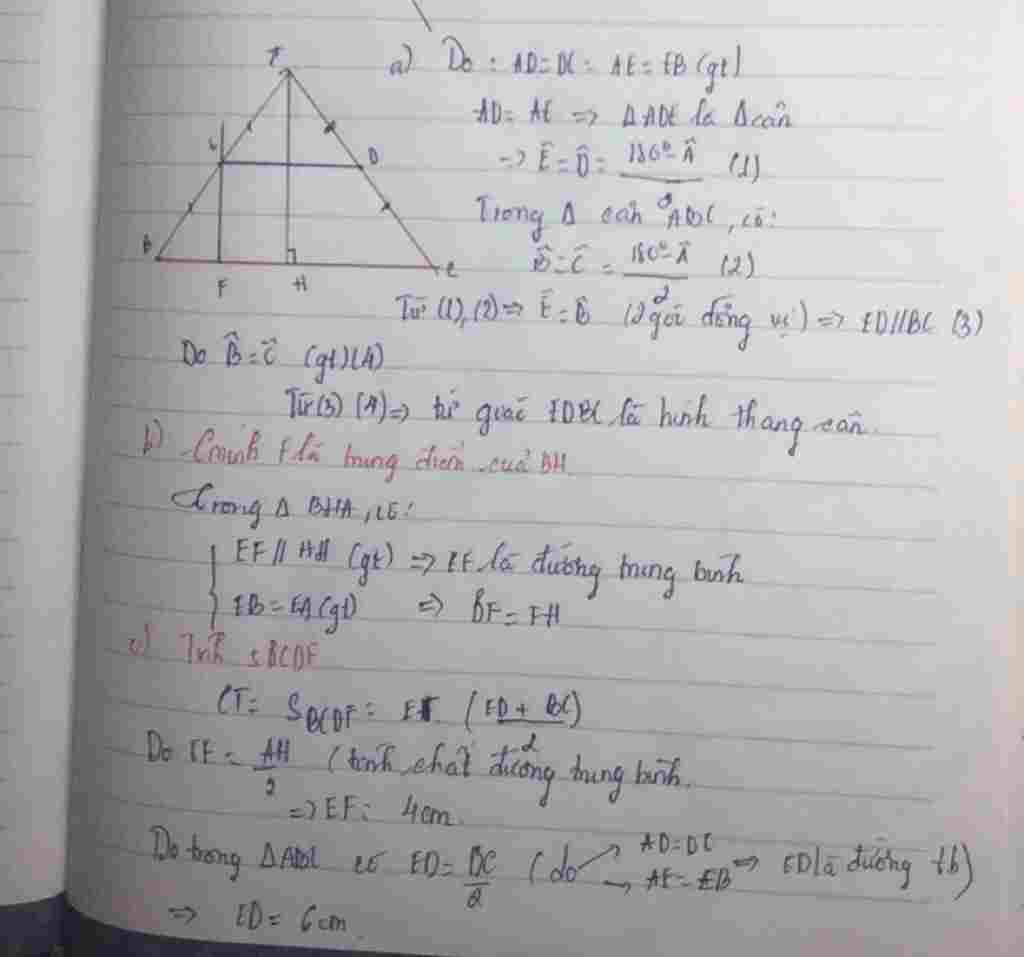 a) Do : AD = DC = AE = EB (gt)
AD = AE => Δ ADE là Δ cân
=> Ê = D̂ = (180° - Â) / 2 (1)
Trong Δ cân ABC, có:
B̂ = Ĉ = (180° - Â) / 2 (2)
Từ (1), (2) => Ê = B̂ (2 góc đồng vị) => ED // BC (3)
Do B̂ = Ĉ (gt) (4)
Từ (3) (4) => tứ giác EDBC là hình thang cân.
b) C minh F là trung điểm của BH
Trong Δ BHA, có:
EF // AH (gt) => EF là đường trung bình
EB = EA (gt) => BF = FH
c) Tính SBCDE
CT = S BCDE = EF. (ED + BC) / 2
Do EF = AH / 2 (tính chất đường trung bình.
=> EF = 4cm.
Do trong Δ ABC có ED = BC / 2 (do AD = DC, AE = EB => ED là đường tb)
=> ED = 6cm.
D
B
F
H
C